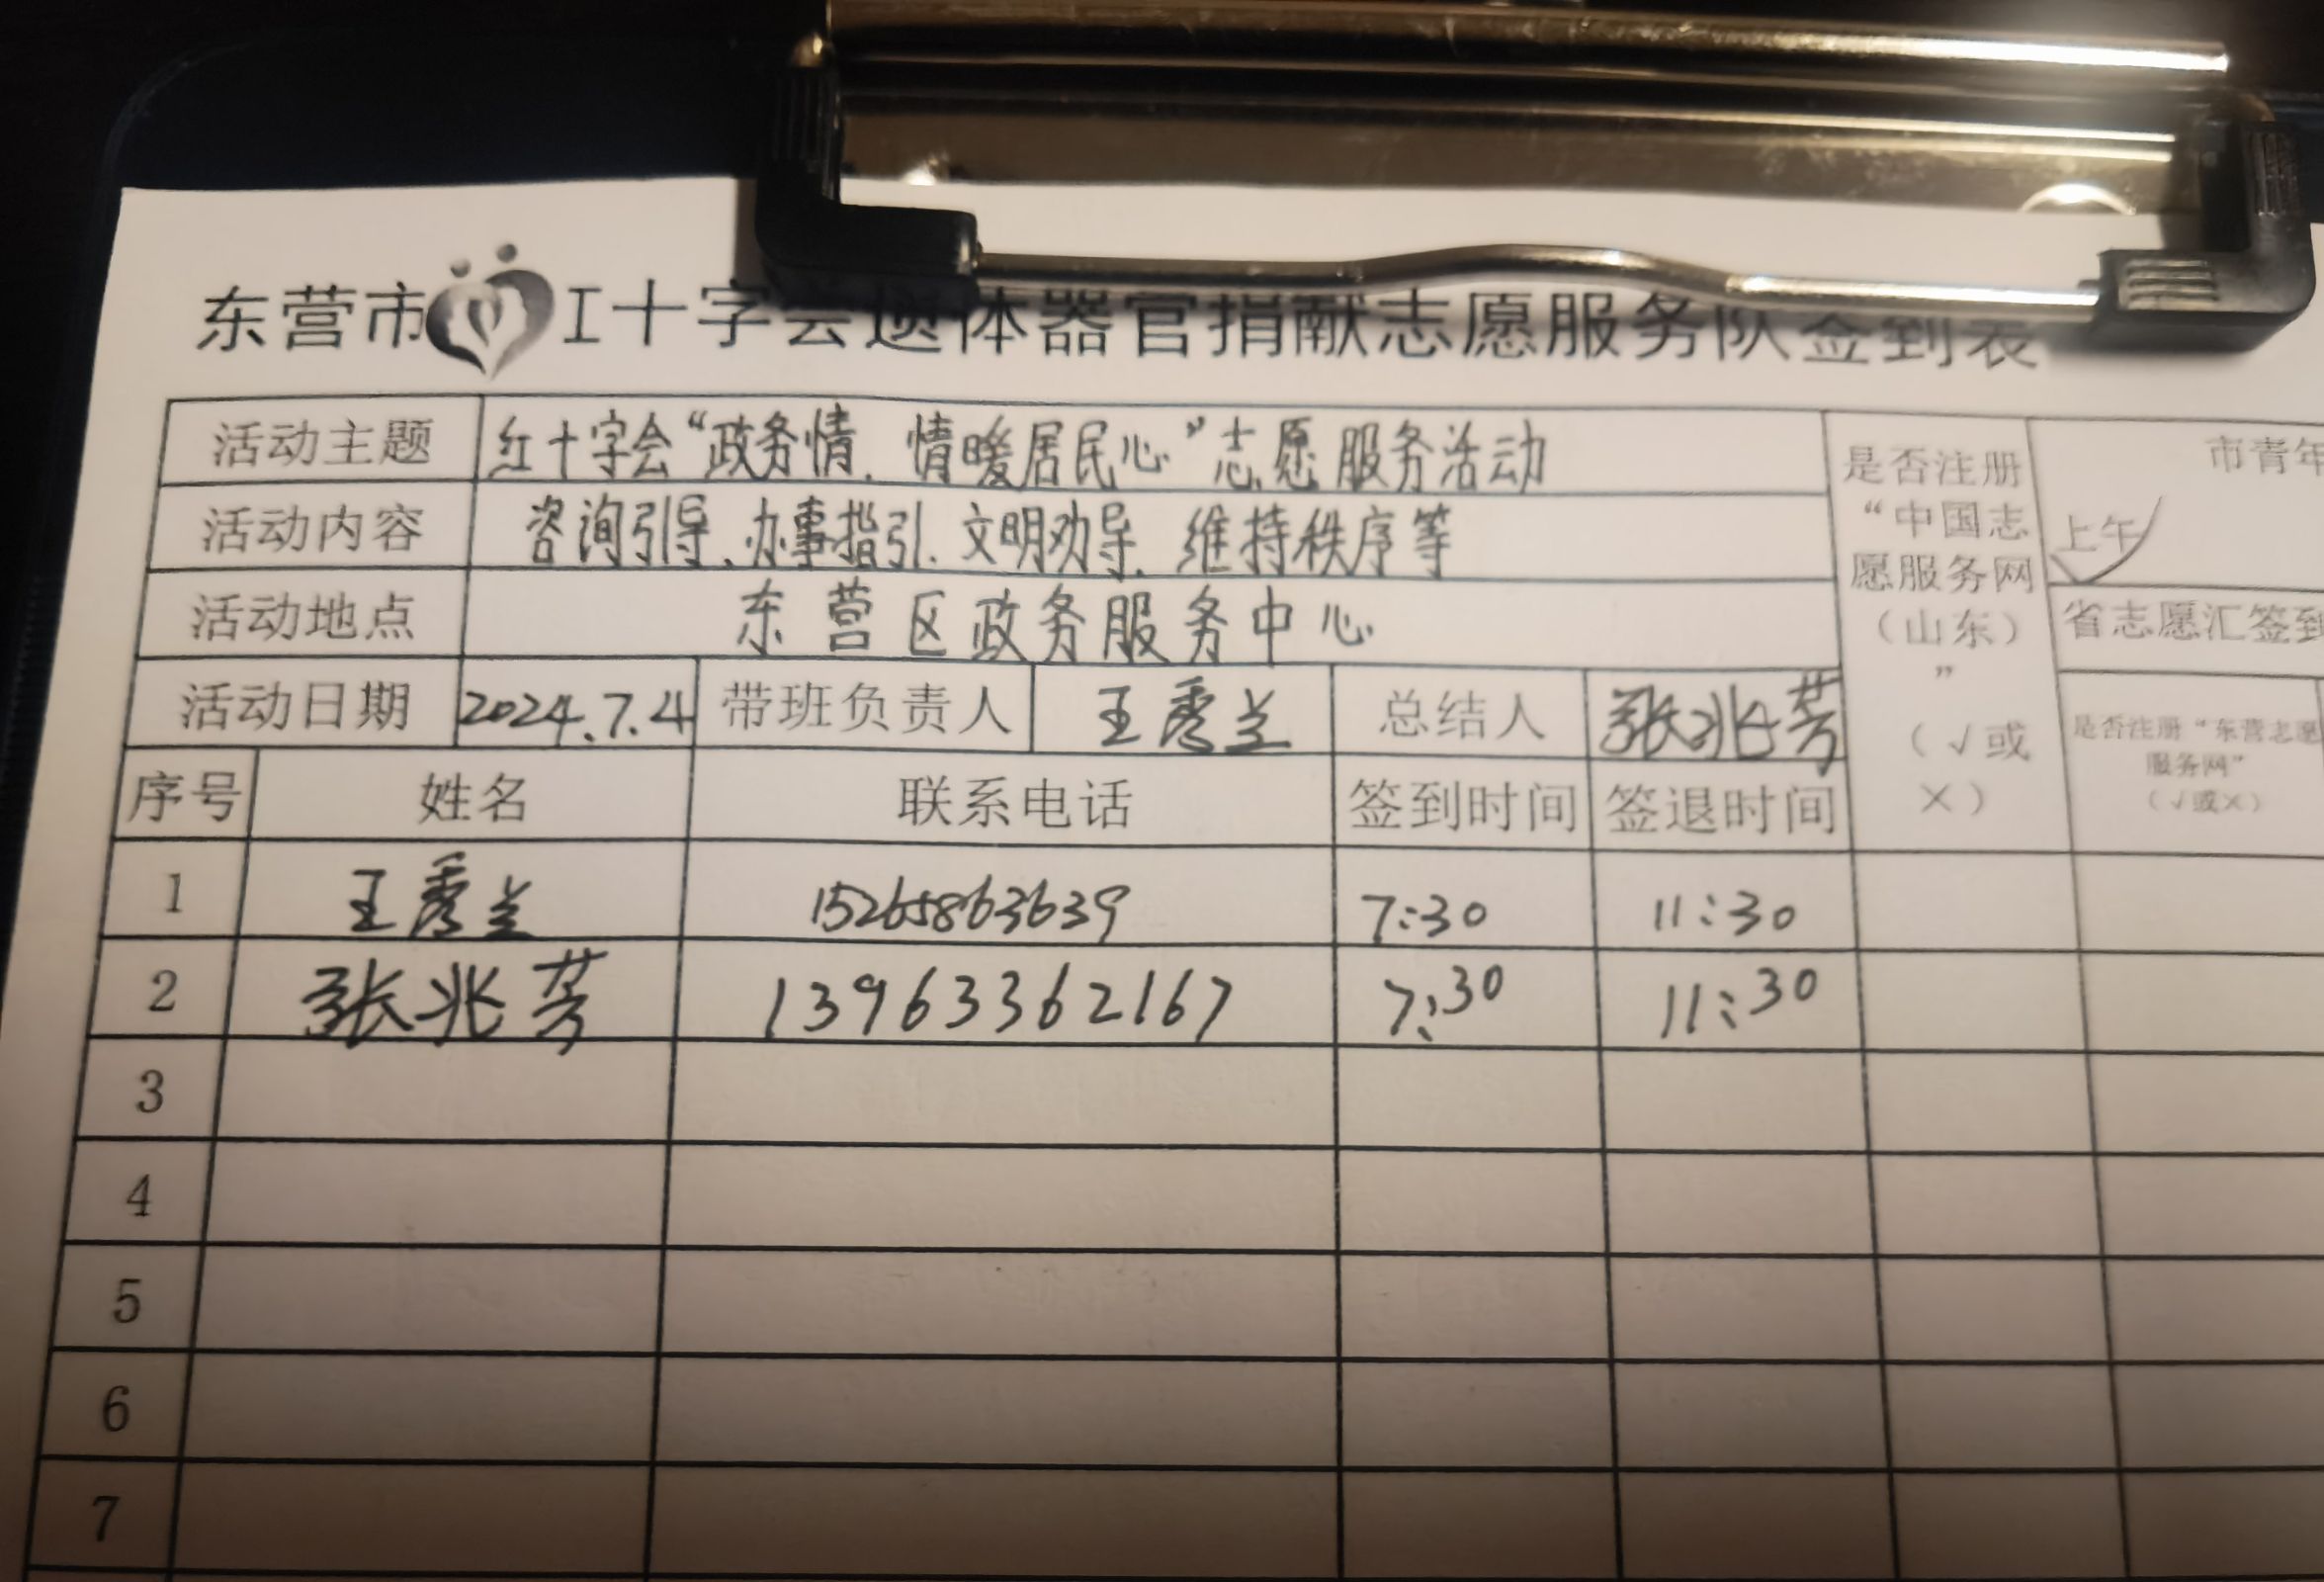 东营市 工十字会遗体器官捐献志愿服务队签到表
活动主题 红十字会“政务情、情暖居民心”志愿服务活动
活动内容 咨询引导、办事指引、文明劝导、维持秩序等
活动地点 东营区政务服务中心
活动日期 2024.7.4 带班负责人 王秀兰 总结人 张兆芳
是否注册
“中国志
愿服务网
（山东）
”
（√或
×）
市青年
上午√
省志愿汇签到
是否注册“东营志愿
服务网”
（√或×）
序号 姓名 联系电话 签到时间 签退时间
1 王秀兰 15265863639 7:30 11:30
2 张兆芳 13963362167 7:30 11:30
3
4
5
6
7